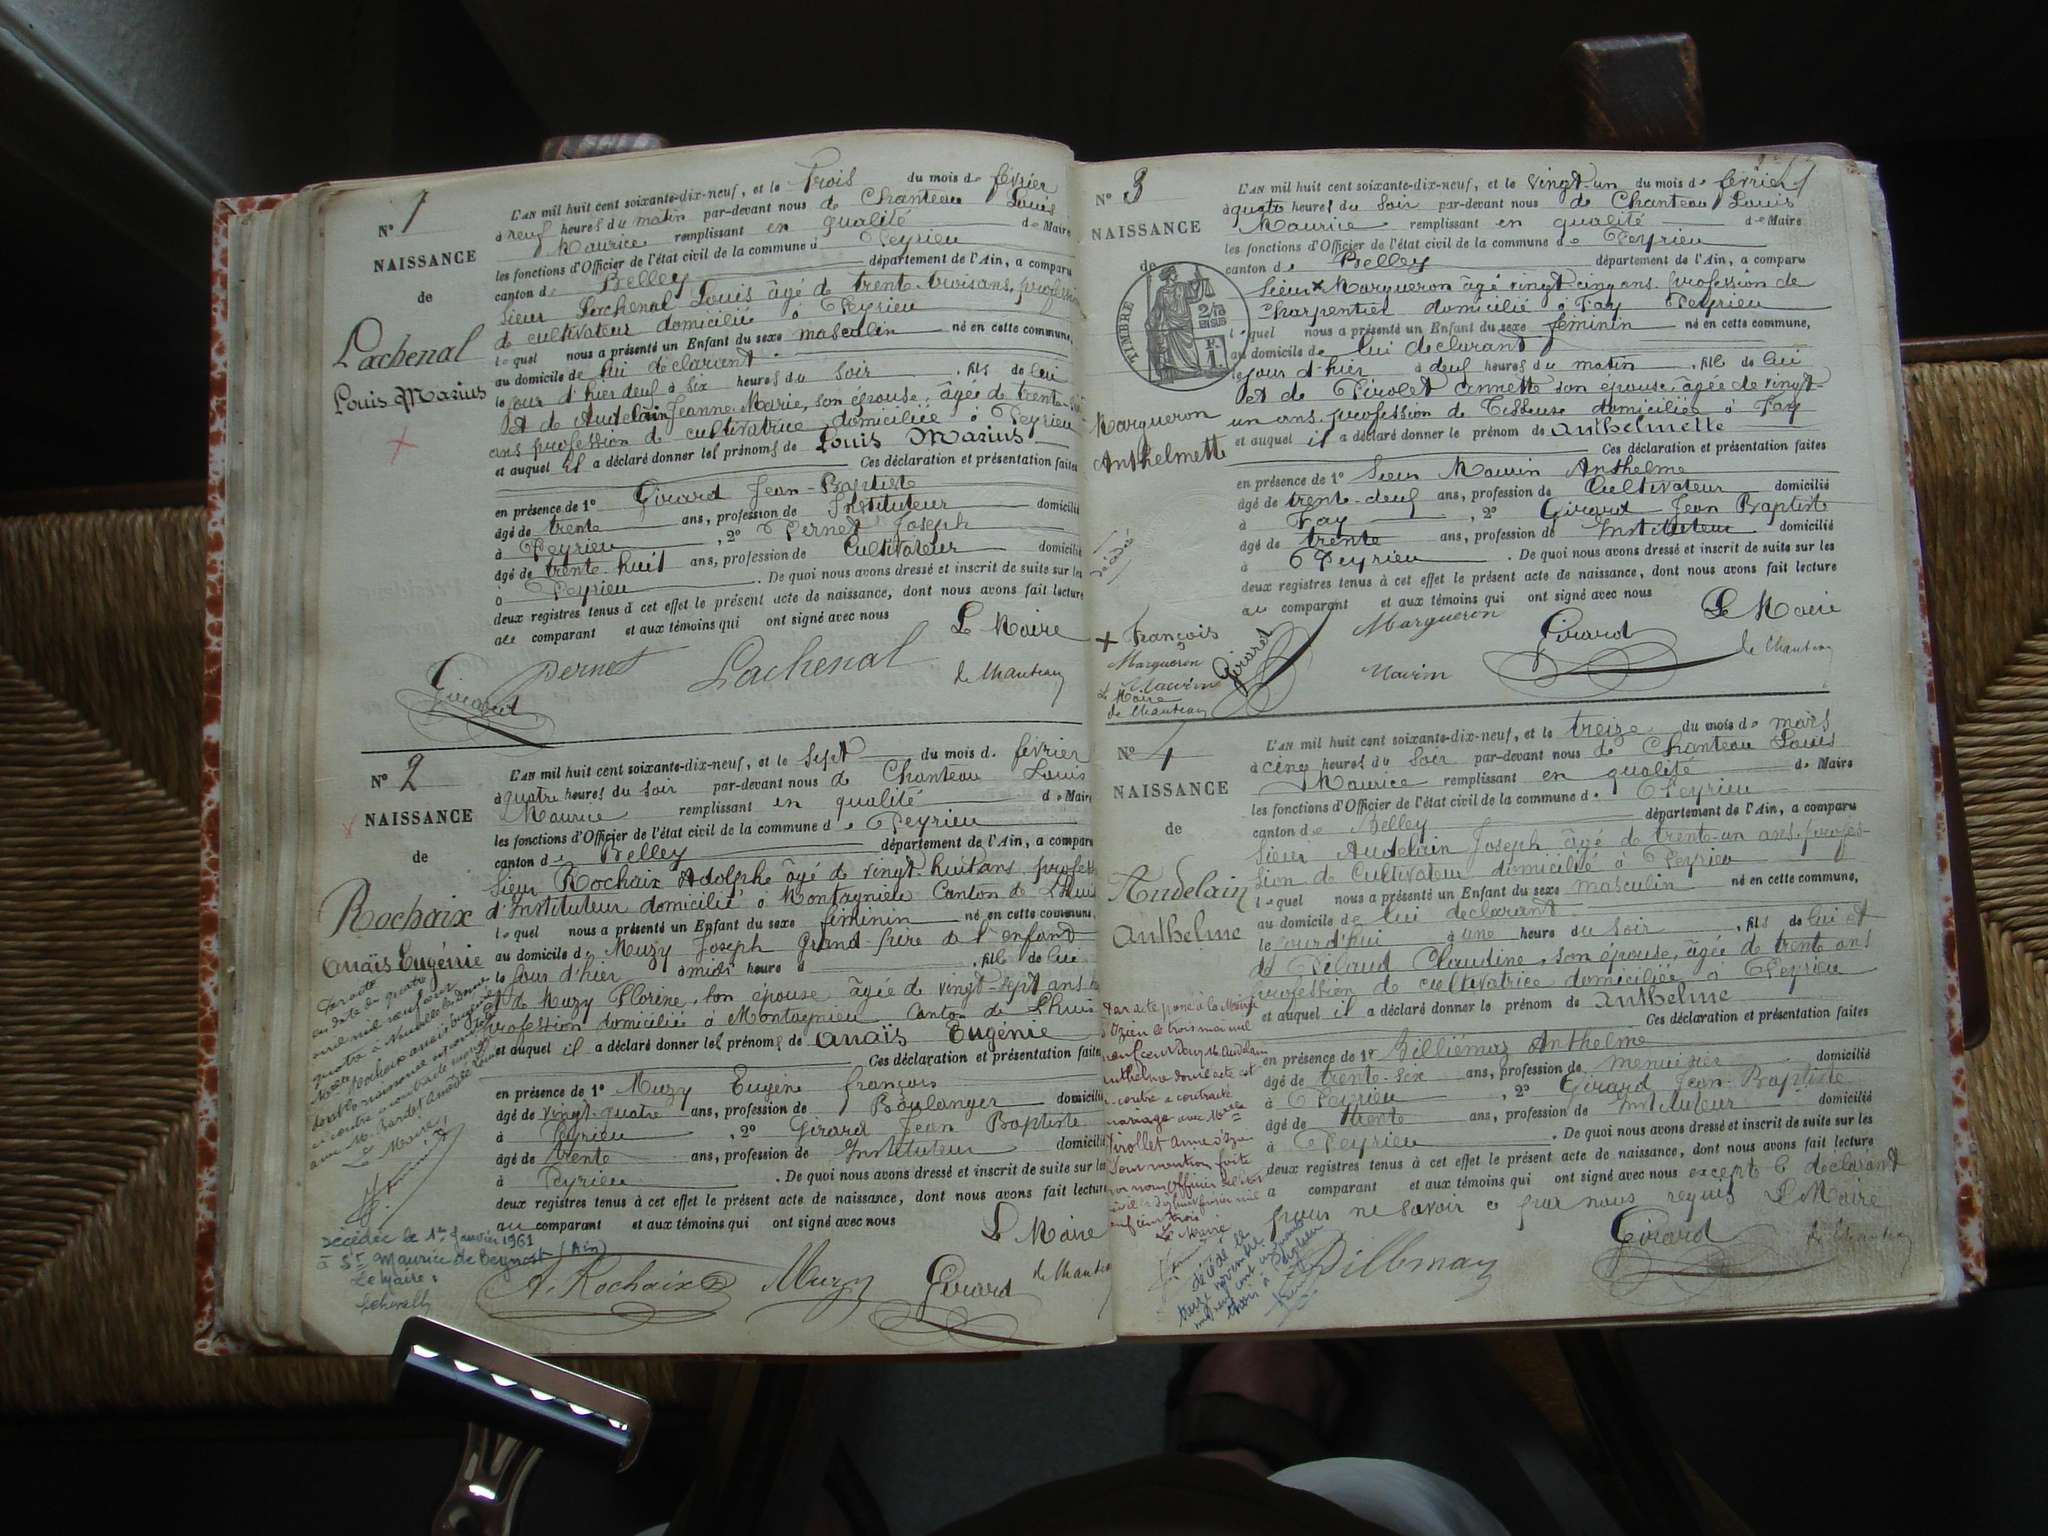 N° 1
NAISSANCE
de
Lachenal
Louis Marius
L'AN mil huit cent soixante-dix-neuf, et le Trois du mois de février
à neuf heures du matin par-devant nous de Chanteau Louis
Maurice remplissant en qualité de Maire
les fonctions d'Officier de l'état civil de la commune d Peyrieu
canton de Belley département de l'Ain, a comparu
Sieur Lachenal Louis âgé de trente-trois ans, profession
de cultivateur domicilié à Peyrieu
lequel nous a présenté un Enfant du sexe masculin né en cette commune,
au domicile de lui déclarant
le jour d'hier deuf à six heures du soir, fils de lui
et de Audelain Jeanne-Marie, son épouse, âgée de trente
ans profession de cultivatrice domiciliée à Peyrieu
et auquel il a déclaré donner les prénoms de Louis Marius
Ces déclaration et présentation faites
en présence de 1° Girard Jean-Baptiste
âgé de trente ans, profession de Instituteur domicilié
à Peyrieu, 2° Pernet Joseph
âgé de trente-huit ans, profession de Cultivateur domicilié
à Peyrieu. De quoi nous avons dressé et inscrit de suite sur les
deux registres tenus à cet effet le présent acte de naissance, dont nous avons fait lecture
au comparant et aux témoins qui ont signé avec nous
Le Maire
Girard Pernet Lachenal de Chanteau
N° 2
NAISSANCE
de
Rochaix
Anaïs Eugénie
L'AN mil huit cent soixante-dix-neuf, et le Sept du mois de février
à quatre heures du soir par-devant nous de Chanteau Louis
Maurice remplissant en qualité de Maire
les fonctions d'Officier de l'état civil de la commune de Peyrieu
canton de Belley département de l'Ain, a comparu
Sieur Rochaix Adolphe âgé de vingt-huit ans, profess
d'Instituteur domicilié à Montagnieu Canton de Lhuis
lequel nous a présenté un Enfant du sexe féminin né en cette commune,
au domicile de Muzy Joseph Grand-frère de l'enfant
le jour d'hier à midi heure à, fille de lui
et de Muzy Florine, son épouse âgée de vingt-sept ans
profession domiciliés à Montagnieu Canton de Lhuis
et auquel il a déclaré donner les prénoms de Anaïs Eugénie
Ces déclaration et présentation faites
en présence de 1° Muzy Eugène françois
âgé de vingt-quatre ans, profession de Boulanger domicilié
à Peyrieu, 2° Girard Jean Baptiste
âgé de trente ans, profession de Instituteur domicilié
à Peyrieu. De quoi nous avons dressé et inscrit de suite sur les
deux registres tenus à cet effet le présent acte de naissance, dont nous avons fait lecture
au comparant et aux témoins qui ont signé avec nous
Le Maire
A. Rochaix Muzy Girard de Chanteau
Le Maire,
décédée le 1er Janvier 1961
à St Maurice de Beynost (Ain)
Le Maire:
N° 3
NAISSANCE
de
TIMBRE
Margueron
Anthelmette
décédée
L'AN mil huit cent soixante-dix-neuf, et le vingt-un du mois de février
à quatre heures du soir par-devant nous de Chanteau Louis
Maurice remplissant en qualité de Maire
les fonctions d'Officier de l'état civil de la commune de Peyrieu
canton de Belley département de l'Ain, a comparu
Sieur x Margueron âgé vingt cinq ans profession de
Charpentier domicilié à Fay Peyrieu
lequel nous a présenté un Enfant du sexe féminin né en cette commune,
au domicile de lui déclarant
le jour d'hier à deuf heures du matin, fille de lui
et de Pirolet Annette son épouse, âgée de vingt-
un ans profession de Tisseuse domiciliée à Fay
et auquel il a déclaré donner le prénom de Anthelmette
Ces déclaration et présentation faites
en présence de 1° Sieur Maurin Anthelme
âgé de trente-deuf ans, profession de Cultivateur domicilié
à Fay, 2° Girard Jean Baptiste
âgé de trente ans, profession de Instituteur domicilié
à Peyrieu. De quoi nous avons dressé et inscrit de suite sur les
deux registres tenus à cet effet le présent acte de naissance, dont nous avons fait lecture
au comparant et aux témoins qui ont signé avec nous
Le Maire
x François
Margueron
Maurin
Le Maire
de Chanteau
Girard Margueron Maurin Girard de Chanteau
N° 4
NAISSANCE
de
Audelain
Anthelme
L'AN mil huit cent soixante-dix-neuf, et le treize du mois de mars
à cinq heures du soir par-devant nous de Chanteau Louis
Maurice remplissant en qualité de Maire
les fonctions d'Officier de l'état civil de la commune de Peyrieu
canton de Belley département de l'Ain, a comparu
Sieur Audelain Joseph âgé de trente-un ans, profes-
sion de Cultivateur domicilié à Peyrieu
lequel nous a présenté un Enfant du sexe masculin né en cette commune,
au domicile de lui déclarant
le jourd'hui à une heure du soir, fils de lui et
de Claudine, son épouse, âgée de trente ans
profession de cultivatrice domiciliée à Peyrieu
et auquel il a déclaré donner le prénom de Anthelme
Ces déclaration et présentation faites
en présence de 1° Billiémaz Anthelme
âgé de trente-six ans, profession de menuisier domicilié
à Peyrieu, 2° Girard Jean-Baptiste
âgé de trente ans, profession de Instituteur domicilié
à Peyrieu. De quoi nous avons dressé et inscrit de suite sur les
deux registres tenus à cet effet le présent acte de naissance, dont nous avons fait lecture
a comparant et aux témoins qui ont signé avec nous except le déclarant
pour ne savoir ce par nous requis Le Maire
Girard de Chanteau
Le Maire